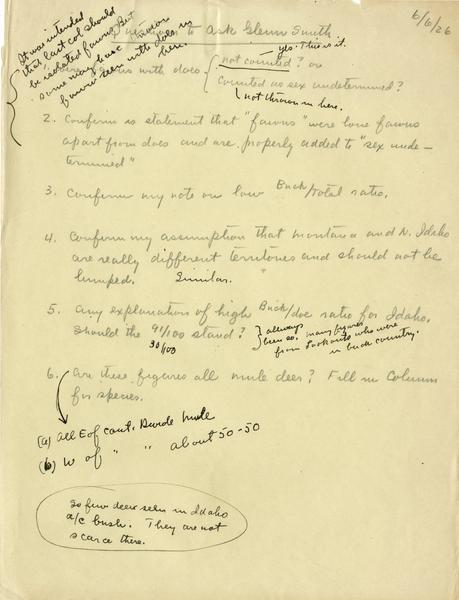 6/6/26
Questions to Ask Glenn Smith
It was intended
that last col should
be isolated fawns. But
some may have thrown
fawns seen with does in
here.
yes. This is it.
with does { not counted? or
counted as sex undetermined?
not thrown in here.
2. Confirm is statement that "fawns" were lone fawns
apart from does and are properly added to "sex unde-
termined"
3. Confirm my note on low Buck/total ratio.
4. Confirm my assumption that Montana and N. Idaho
are really different territories and should not be
lumped. Similar.
5. Any explanation of high Buck/doe ratio for Idaho.
Should the 91/100 stand?
30/100
always
been so. many figures
from Lookouts who were
in buck country.
6. Are these figures all mule deer? Fill in Column
for species.
(a) all E of cont. Divide mule
(b) W of " " about 50-50
So few deer seen in Idaho
a/c bush. They are not
scarce there.